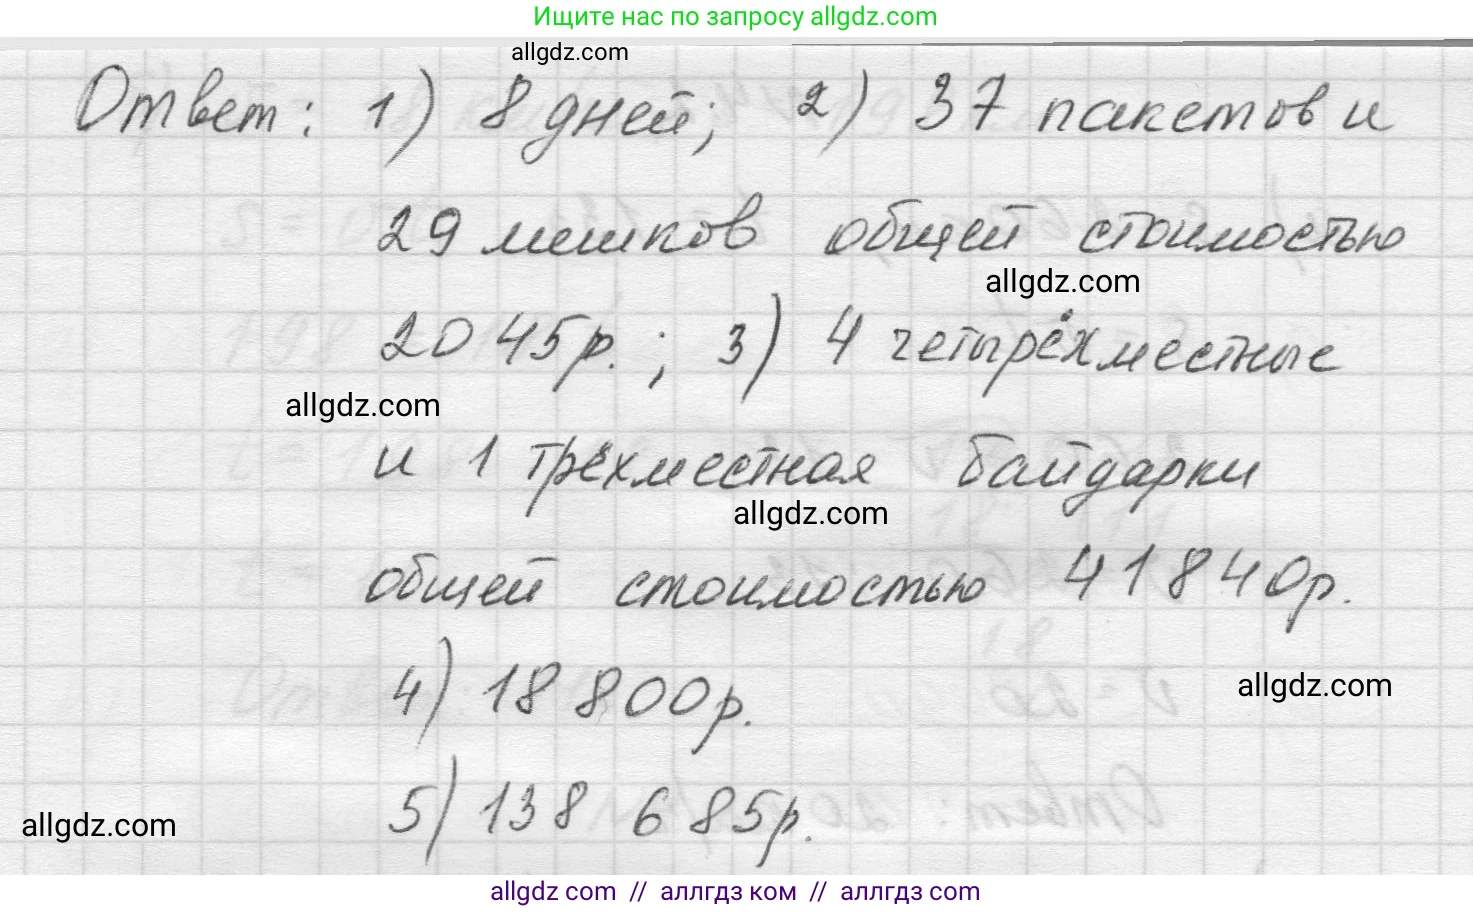 Ищите нас по запросу allgdz.com
allgdz.com
Ответ: 1) 8 дней; 2) 37 пакетов и
29 мешков общей стоимостью
allgdz.com
2045р.; 3) 4 четырёхместные
allgdz.com
и 1 трёхместная байдарки
allgdz.com
общей стоимостью 41840р.
4) 18 800р.
allgdz.com
5) 138 685р.
allgdz.com
allgdz com // аллгдз ком // аллгдз com